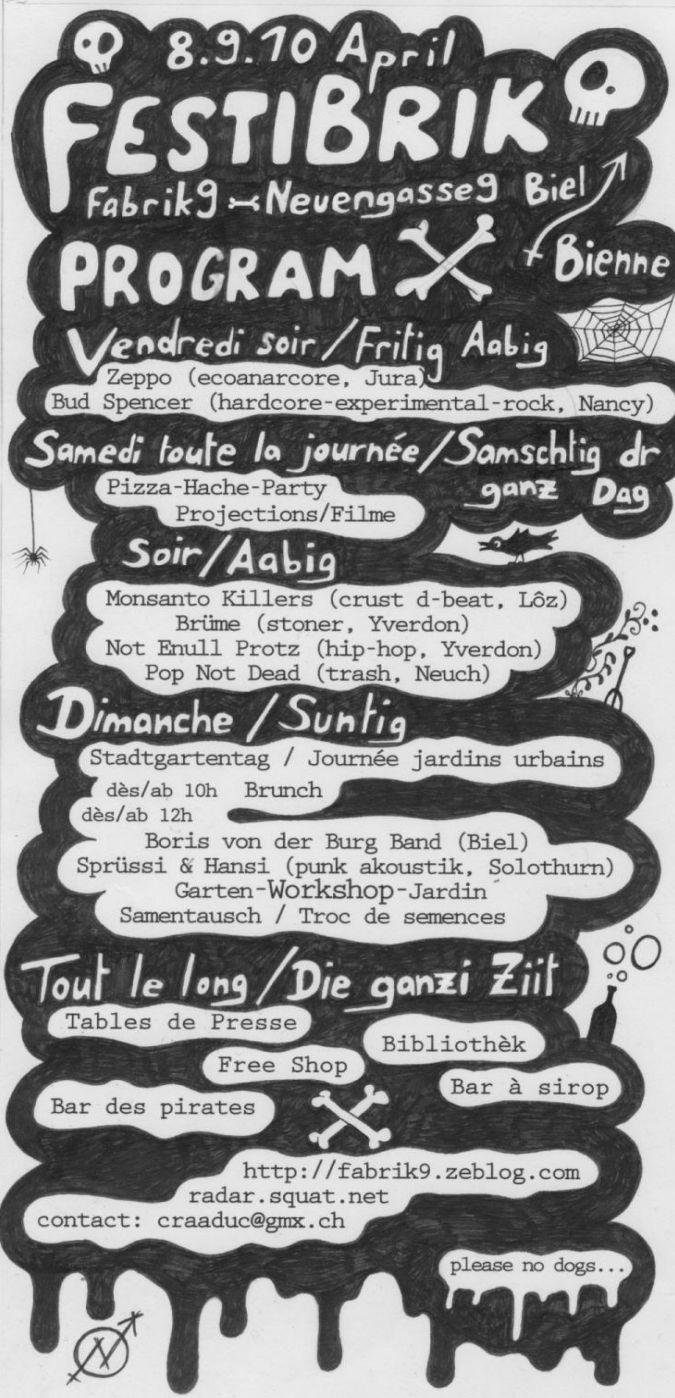 8.9.10 April
FESTIBRIK
Fabrik9 Neuengasse9 Biel
+ Bienne
PROGRAM
Vendredi soir/Fritig Aabig
Zeppo (ecoanarcore, Jura)
Bud Spencer (hardcore-experimental-rock, Nancy)
Samedi toute la journée/Samschtig dr
ganz Dag
Pizza-Hache-Party
Projections/Filme
Soir/Aabig
Monsanto Killers (crust d-beat, Lôz)
Brüme (stoner, Yverdon)
Not Enull Protz (hip-hop, Yverdon)
Pop Not Dead (trash, Neuch)
Dimanche/Suntig
Stadtgartentag / Journée jardins urbains
dès/ab 10h Brunch
dès/ab 12h
Boris von der Burg Band (Biel)
Sprüssi & Hansi (punk akoustik, Solothurn)
Garten-Workshop-Jardin
Samentausch / Troc de semences
Tout le long/Die ganzi Ziit
Tables de Presse
Bibliothèk
Free Shop
Bar à sirop
Bar des pirates
http://fabrik9.zeblog.com
radar.squat.net
contact: craaduc@gmx.ch
please no dogs...
N